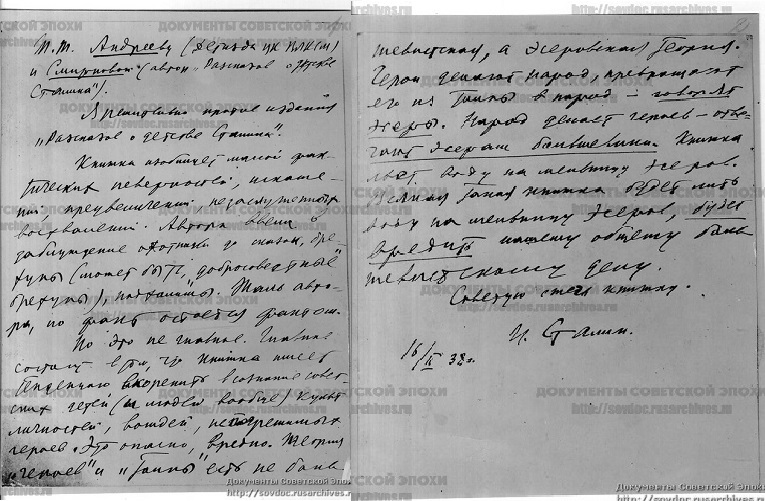 Т.т. Андрееву (Детиздат ЦК ВЛКСМ)
и Смирновой (автор „Рассказов о детстве
Сталина").
Я решительно против издания
„Рассказов о детстве Сталина".
Книжка изобилует массой фак-
тических неверностей, искаже-
ний, преувеличений, незаслуженных
восхвалений. Автора ввели в
заблуждение охотники до сказок, бре-
хуны (может быть, „добросовестные"
брехуны), подхалимы. Жаль авто-
ра, но факт остается фактом.
Но это не главное. Главное
состоит в том, что книжка имеет
тенденцию вкоренить в сознание совет-
ских детей (и людей вообще) культ
личностей, вождей, непогрешимых
героев. Это опасно, вредно. Теория
„героев" и „толпы" есть не боль-
шевистская, а эсеровская теория.
Герои делают народ, превращают
его из толпы в народ – говорят
эсеры. Народ делает героев – отве-
чают эсерам большевики. Книжка
льет воду на мельницу эсеров.
Всякая такая книжка будет лить
воду на мельницу эсеров, будет
вредить нашему общему боль-
шевистскому делу.
Советую сжечь книжку.
И. Сталин.
16/II 38 г.
ДОКУМЕНТЫ СОВЕТСКОЙ ЭПОХИ
http://sovdoc.rusarchives.ru